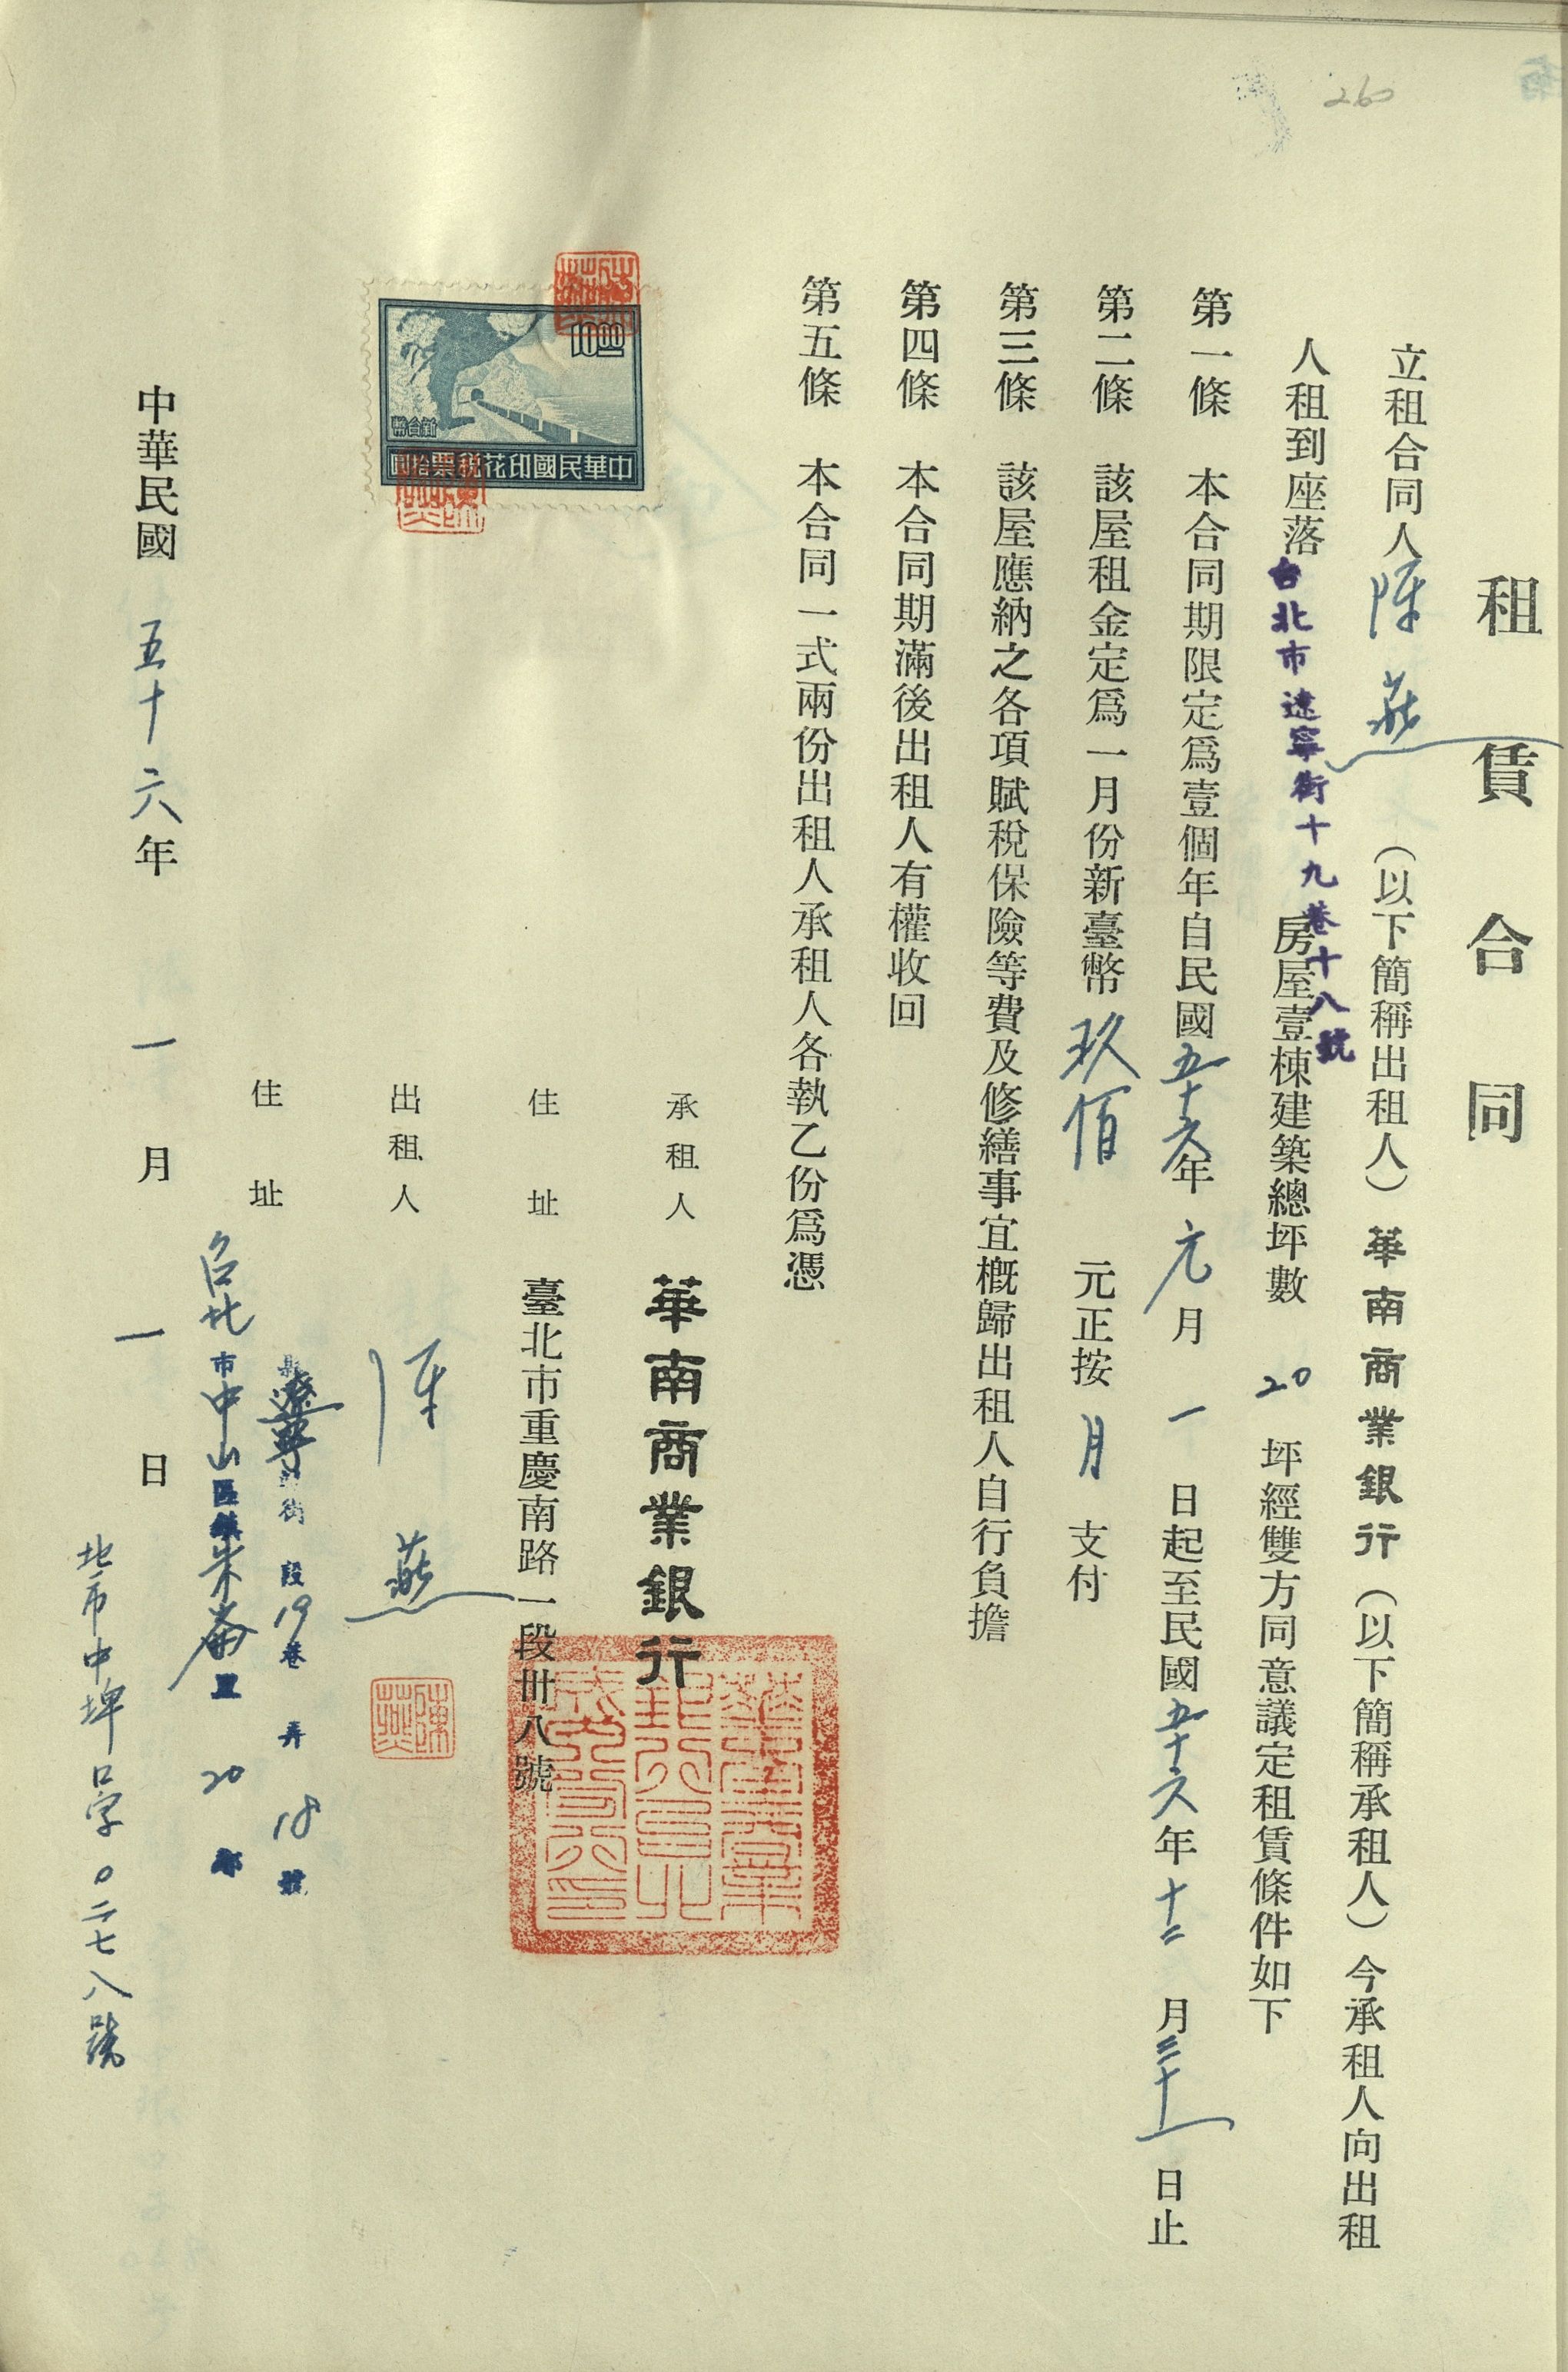 260
租賃合同
立租合同人陳燕（以下簡稱出租人）華南商業銀行（以下簡稱承租人）今承租人向出租
人租到座落台北市遼寧街十九巷十八號房屋壹棟建築總坪數20坪經雙方同意議定租賃條件如下
第一條 本合同期限定爲壹個年自民國五十六年元月一日起至民國五十六年十二月三十一日止
第二條 該屋租金定爲一月份新臺幣玖佰元正按月支付
第三條 該屋應納之各項賦稅保險等費及修繕事宜槪歸出租人自行負擔
第四條 本合同期滿後出租人有權收回
第五條 本合同一式兩份出租人承租人各執乙份爲憑
10.00
新台幣
中華民國印花稅票拾圓
承租人 華南商業銀行
住址 臺北市重慶南路一段卅八號
出租人 陳燕
陳燕
住址 台北市中山區朱崙里20鄰
遼寧街 段19巷 弄18號
中華民國五十六年一月一日
北市中埤口字0二七八號